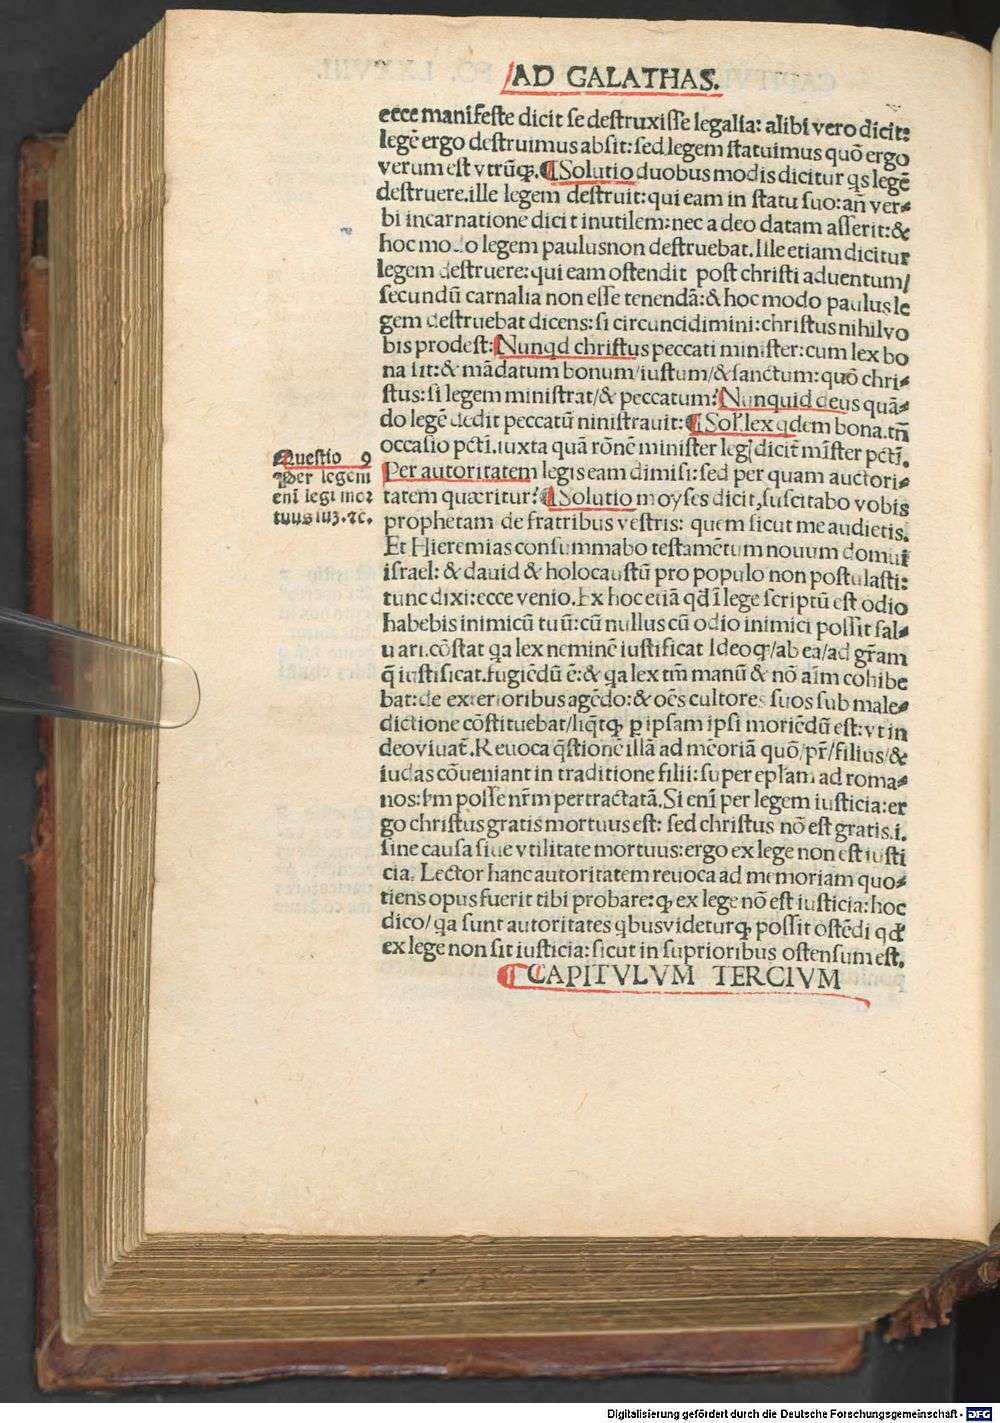 AD GALATHAS.
ecce manifeste dicit se destruxisse legalia: alibi vero dicit:
legẽ ergo destruimus absit: sed legem statuimus quõ ergo
verum est vtrũqꝫ. ¶ Solutio duobus modis dicitur qs legẽ
destruere. ille legem destruit: qui eam in statu suo: añ ver⸗
bi incarnatione dicit inutilem: nec a deo datam asserit: &
hoc modo legem paulus non destruebat. Ille etiam dicitur
legem destruere: qui eam ostendit post christi aduentum/
secundũ carnalia non esse tenendã: & hoc modo paulus le
gem destruebat dicens: si circuncidimini: christus nihil vo
bis prodest: Nunqd christus peccati minister: cum lex bo
na sit: & mãdatum bonum/iustum/& sanctum: quõ chri⸗
stus: si legem ministrat/& peccatum? Nunquid deus quã⸗
do legẽ dedit peccatũ ninistrauit: ¶ Sol'. lex qdem bona. tñ
occasio pctĩ. iuxta quã rõnẽ minister leg dicit mĩster pctĩ.
Per autoritatem legis eam dimisi: sed per quam auctori⸗
tatem quæritur? ¶ Solutio moyses dicit, suscitabo vobis
prophetam de fratribus vestris: quem sicut me audietis.
Et Hieremias consummabo testamẽtum nouum domui
israel: & dauid & holocaustũ pro populo non postulasti:
tunc dixi: ecce venio. Ex hoc etiã qđ ĩ lege scriptũ est odio
habebis inimicũ tuũ: cũ nullus cũ odio inimici possit sal⸗
uari. cõstat qa lex neminẽ iustificat Ideoqꝫ/ab ea/ad grãm
q̃ iustificat. fugiẽdũ ẽ: & qa lex tm̃ manũ & nõ aĩm cohibe
bat: de exterioribus agẽdo: & oẽs cultores suos sub male⸗
dictione cõstituebat/liq̃tqꝫ ꝑ ipsam ipsi moriẽdũ est: vt in
deo viuat̃. Reuoca q̃stionẽ illã ad mẽoriã quõ/pr̃/filius/&
iudas cõueniant in traditione filii: super epl'am ad roma⸗
nos: s'm posse nr̃m pertractatã. Si enĩ per legem iusticia: er
go christus gratis mortuus est: sed christus nõ est gratis. i.
sine causa siue vtilitate mortuus: ergo ex lege non est iusti
cia. Lector hanc autoritatem reuoca ad memoriam quo⸗
tiens opus fuerit tibi probare: qꝫ ex lege nõ est iusticia: hoc
dico/qa sunt autoritates qbus videtur qꝫ possit ostẽdi qđ
ex lege non sit iusticia: sicut in suprioribus ostensum est.
¶ CAPITVLVM TERCIVM
Questio 9
Per legem
enĩ legi mor
tuus suꝫ. ⁊c.
Digitalisierung gefördert durch die Deutsche Forschungsgemeinschaft - DFG